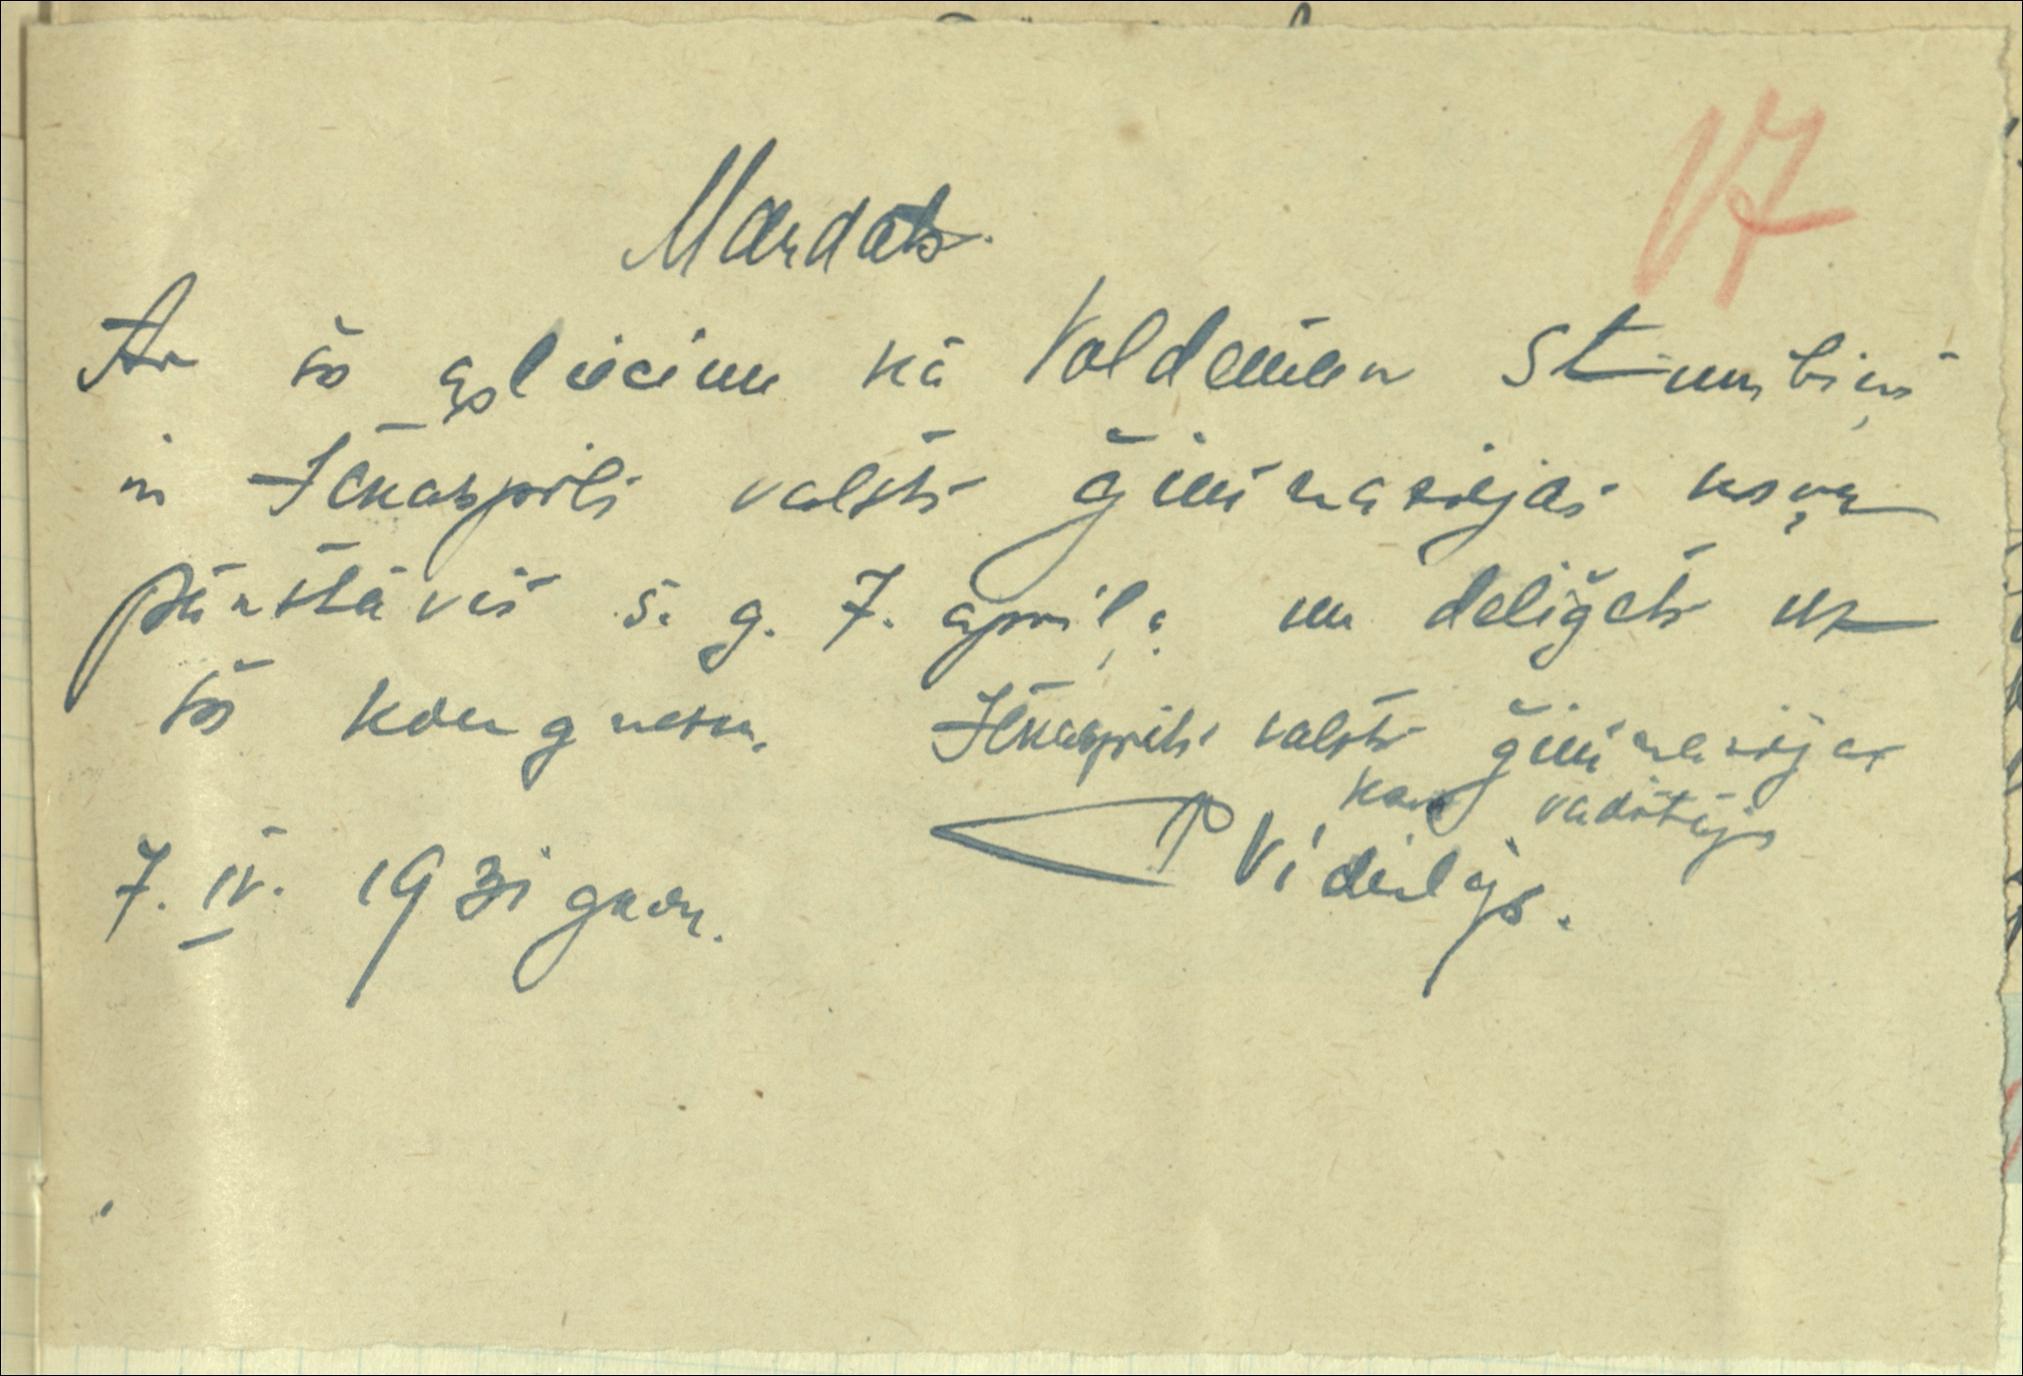 17
Mandāts.
Ar šo apliecinu kā Voldemārs Stumbiņš
ir Jēkabpils valsts ģimnāzijas kopu
pārstāvis š. g. 7. aprīļa un deliģēts uz
šo kongresu. Jēkabpils valsts ģimnāzijas
kop. vadītājs
7. IV. 1931 gadā. Videlājs.